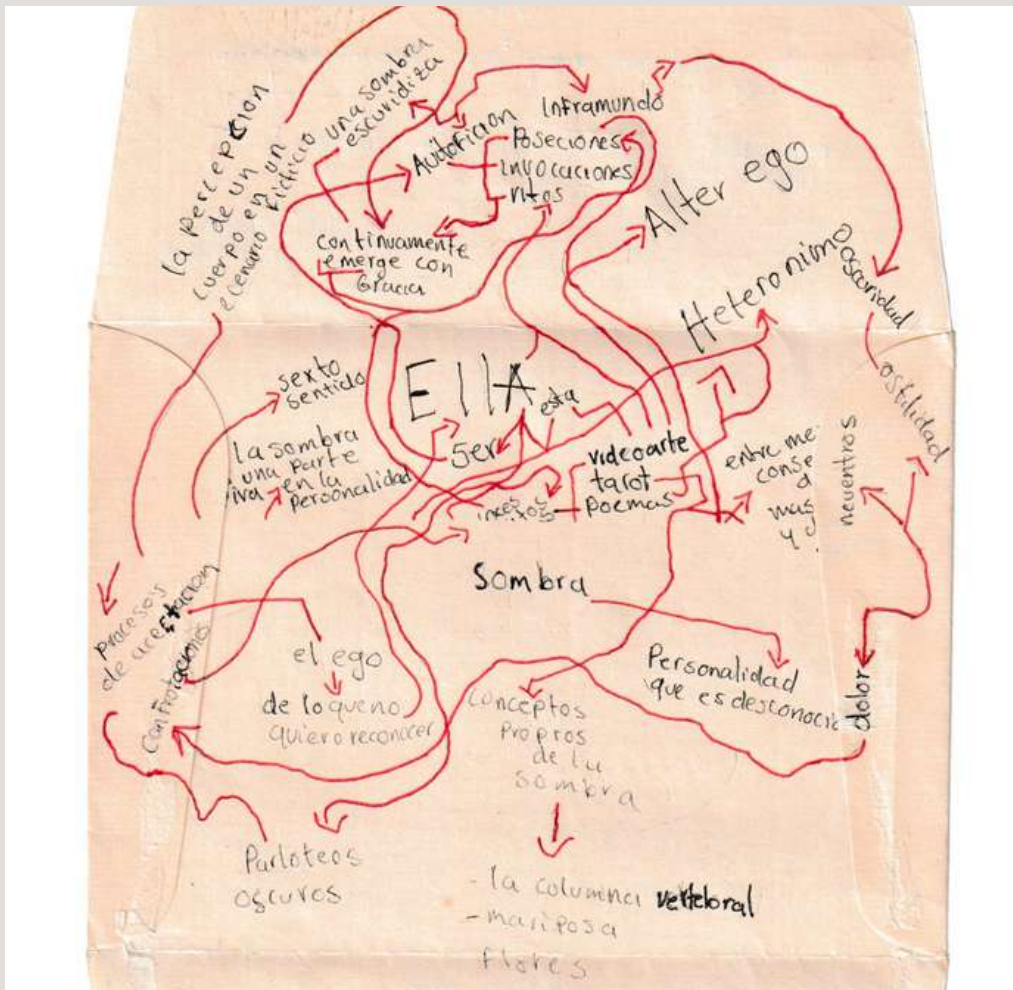 la percepcion
de un
cuerpo en un
ecenario ficticio
una sombra
escuridiza
Autoficion
Inframundo
Poseciones
invocaciones
ritos
continuamente
emerge con
Gracia
Alter ego
Heteronimo
oscuridad
ostilidad
EllA
esta
Ser
sexto
sentido
la sombra
una parte
iva en la
personalidad
videoarte
tarot
poemas
entre me
conse
mas
y
neuentros
Sombra
procesos
de acestacion
confrotaciones
el ego
de lo que no
quiero reconocer
Personalidad
que es desconocia
dolor
conceptos
propros
de lu
sombra
Parloteos
oscuros
- la columna verteloral
- mariposa
flores